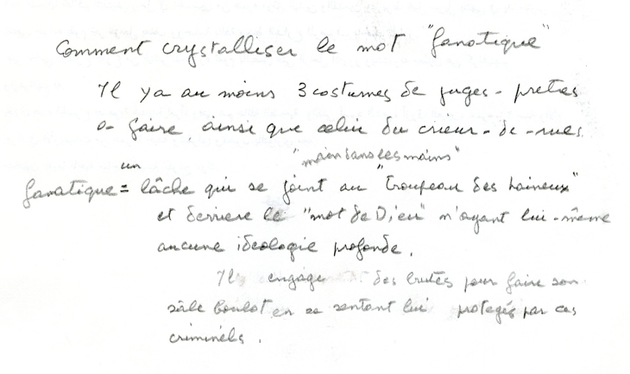 Comment crystalliser le mot "fanatique"
Il y a au moins 3 costumes de juges - pretres
a faire, ainsi que celui du crieur - de - rues
"main dans les mains"
un
fanatique = lâche qui se joint au "troupeau des haineux"
et derriere le "mot de Dieu" n'ayant lui-même
aucune ideologie profonde.
Il engage des brutes pour faire son
sâle boulot en se sentant lui protegés par ces
criminels.